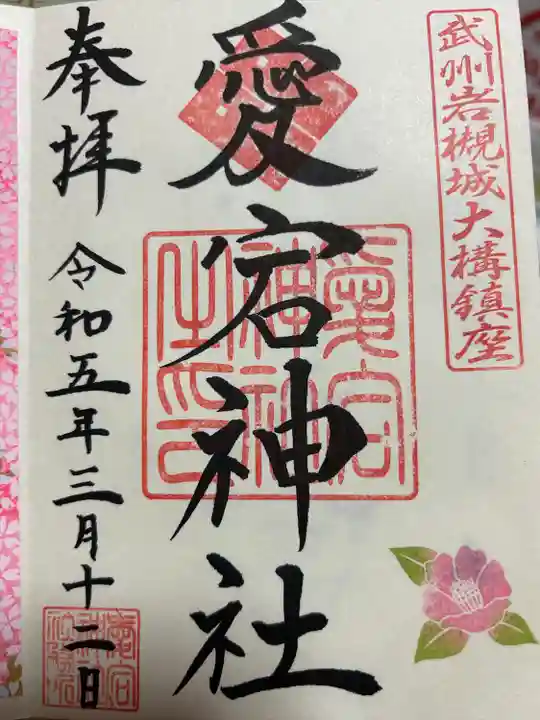 武州岩槻城大構鎮座
愛宕神社
愛宕
神社
之印
奉拝
令和五年三月十二日